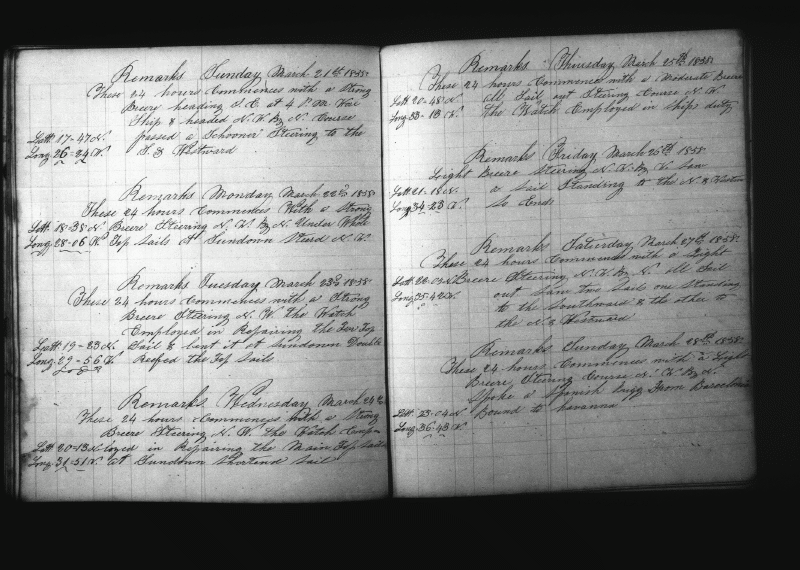 Remarks Sunday March 21st 1858
These 24 hours Commences with a Strong
Breeze heading S. E. at 4 P.M. Wore
Ship & headed N. W. By N. Course
Latt 17-47 N. passed a Schooner Steering to the
Long 26-24 W. S. & Westward
Remarks Monday March 22nd 1858
These 24 hours Commences With a Strong
Latt 18-38 N. Breeze Steering N. W. By N. Under Whole
Long 28-06 W. Top Sails At Sundown Steard N. W.
Remarks Tuesday March 23d 1858
These 24 hours Commences with a Strong
Breeze Steering N. W. the Watch
Employed in Repairing the Fore Top
Latt 19-23 N. Sail & bent it at Sundown Double
Long 29-56 W. Reefed the Top Sails
Remarks Wednesday March 24th
These 24 hours Commences with a Strong
Breeze Steering N. W. the Watch Emp-
Latt 20-13 N. loyed in Repairing the Main Top Sail
Long 31-51 W. at Sundown Shortend Sail
Remarks Thursday March 25th 1858
These 24 hours Commences with a Moderate Breeze
Latt 20-48 N. all Sail out Steering Course N. W.
Long 33-13 W. the Watch Employed in Ships duty
Remarks Friday March 26th 1858
Light Breeze Steering N. W. By N. Saw
Latt 21-18 N. a Sail Standing to the N. & Westward
Long 34-23 W. So Ends
Remarks Saturday March 27th 1858
These 24 hours Commences with a Light
Latt 22-03 N. Breeze Steering N. W. By N. all Sail
Long 35-42 W. out Saw two Sails one Standing
to the Southward & the other to
the N. & Westward
Remarks Sunday March 28th 1858
These 24 hours Commences with a Light
Breeze Steering Course N. W. By N.
Spoke a Spanish Brigg From Barcelonia
Latt 23-04 N. Bound to havanna
Long 36-43 W.